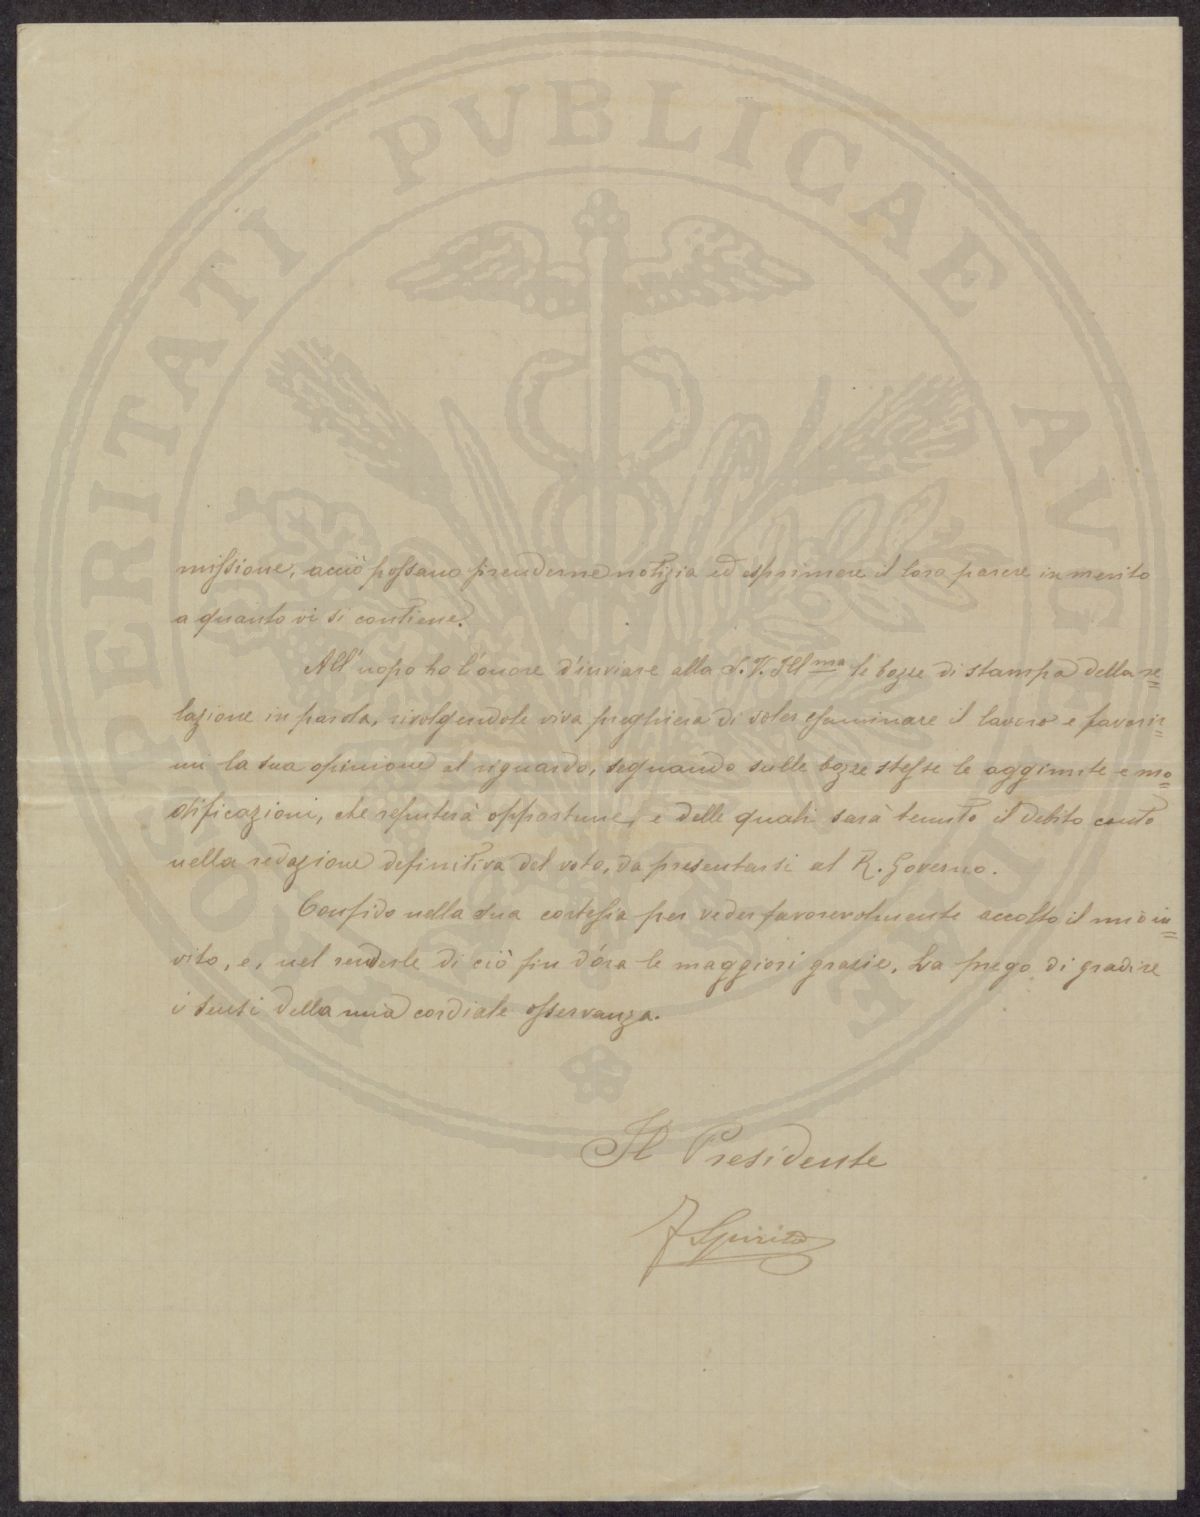 PROSPERITATI PVBLICAE AVGENDAE
missione, acciò possano prenderne notizia ed esprimere il loro parere in merito
a quanto vi si contiene.
All'uopo ho l'onore d'inviare alla S.V. Ill ma le bozze di stampa della re=
lazione in parola, rivolgendole viva preghiera di voler esaminare il lavoro e favorir=
mi la sua opinione al riguardo, segnando sulle bozze stesse le aggiunte e mo=
dificazioni, che reputerà opportune, e delle quali sarà tenuto il debito conto
nella redazione definitiva del voto, da presentarsi al R. Governo.
Confido nella sua cortesia per veder favorevolmente accolto il mio in=
vito, e, nel renderle di ciò fin d'ora le maggiori grazie, La prego di gradire
i sensi della mia cordiale osservanza.
Il Presidente
F Spirito